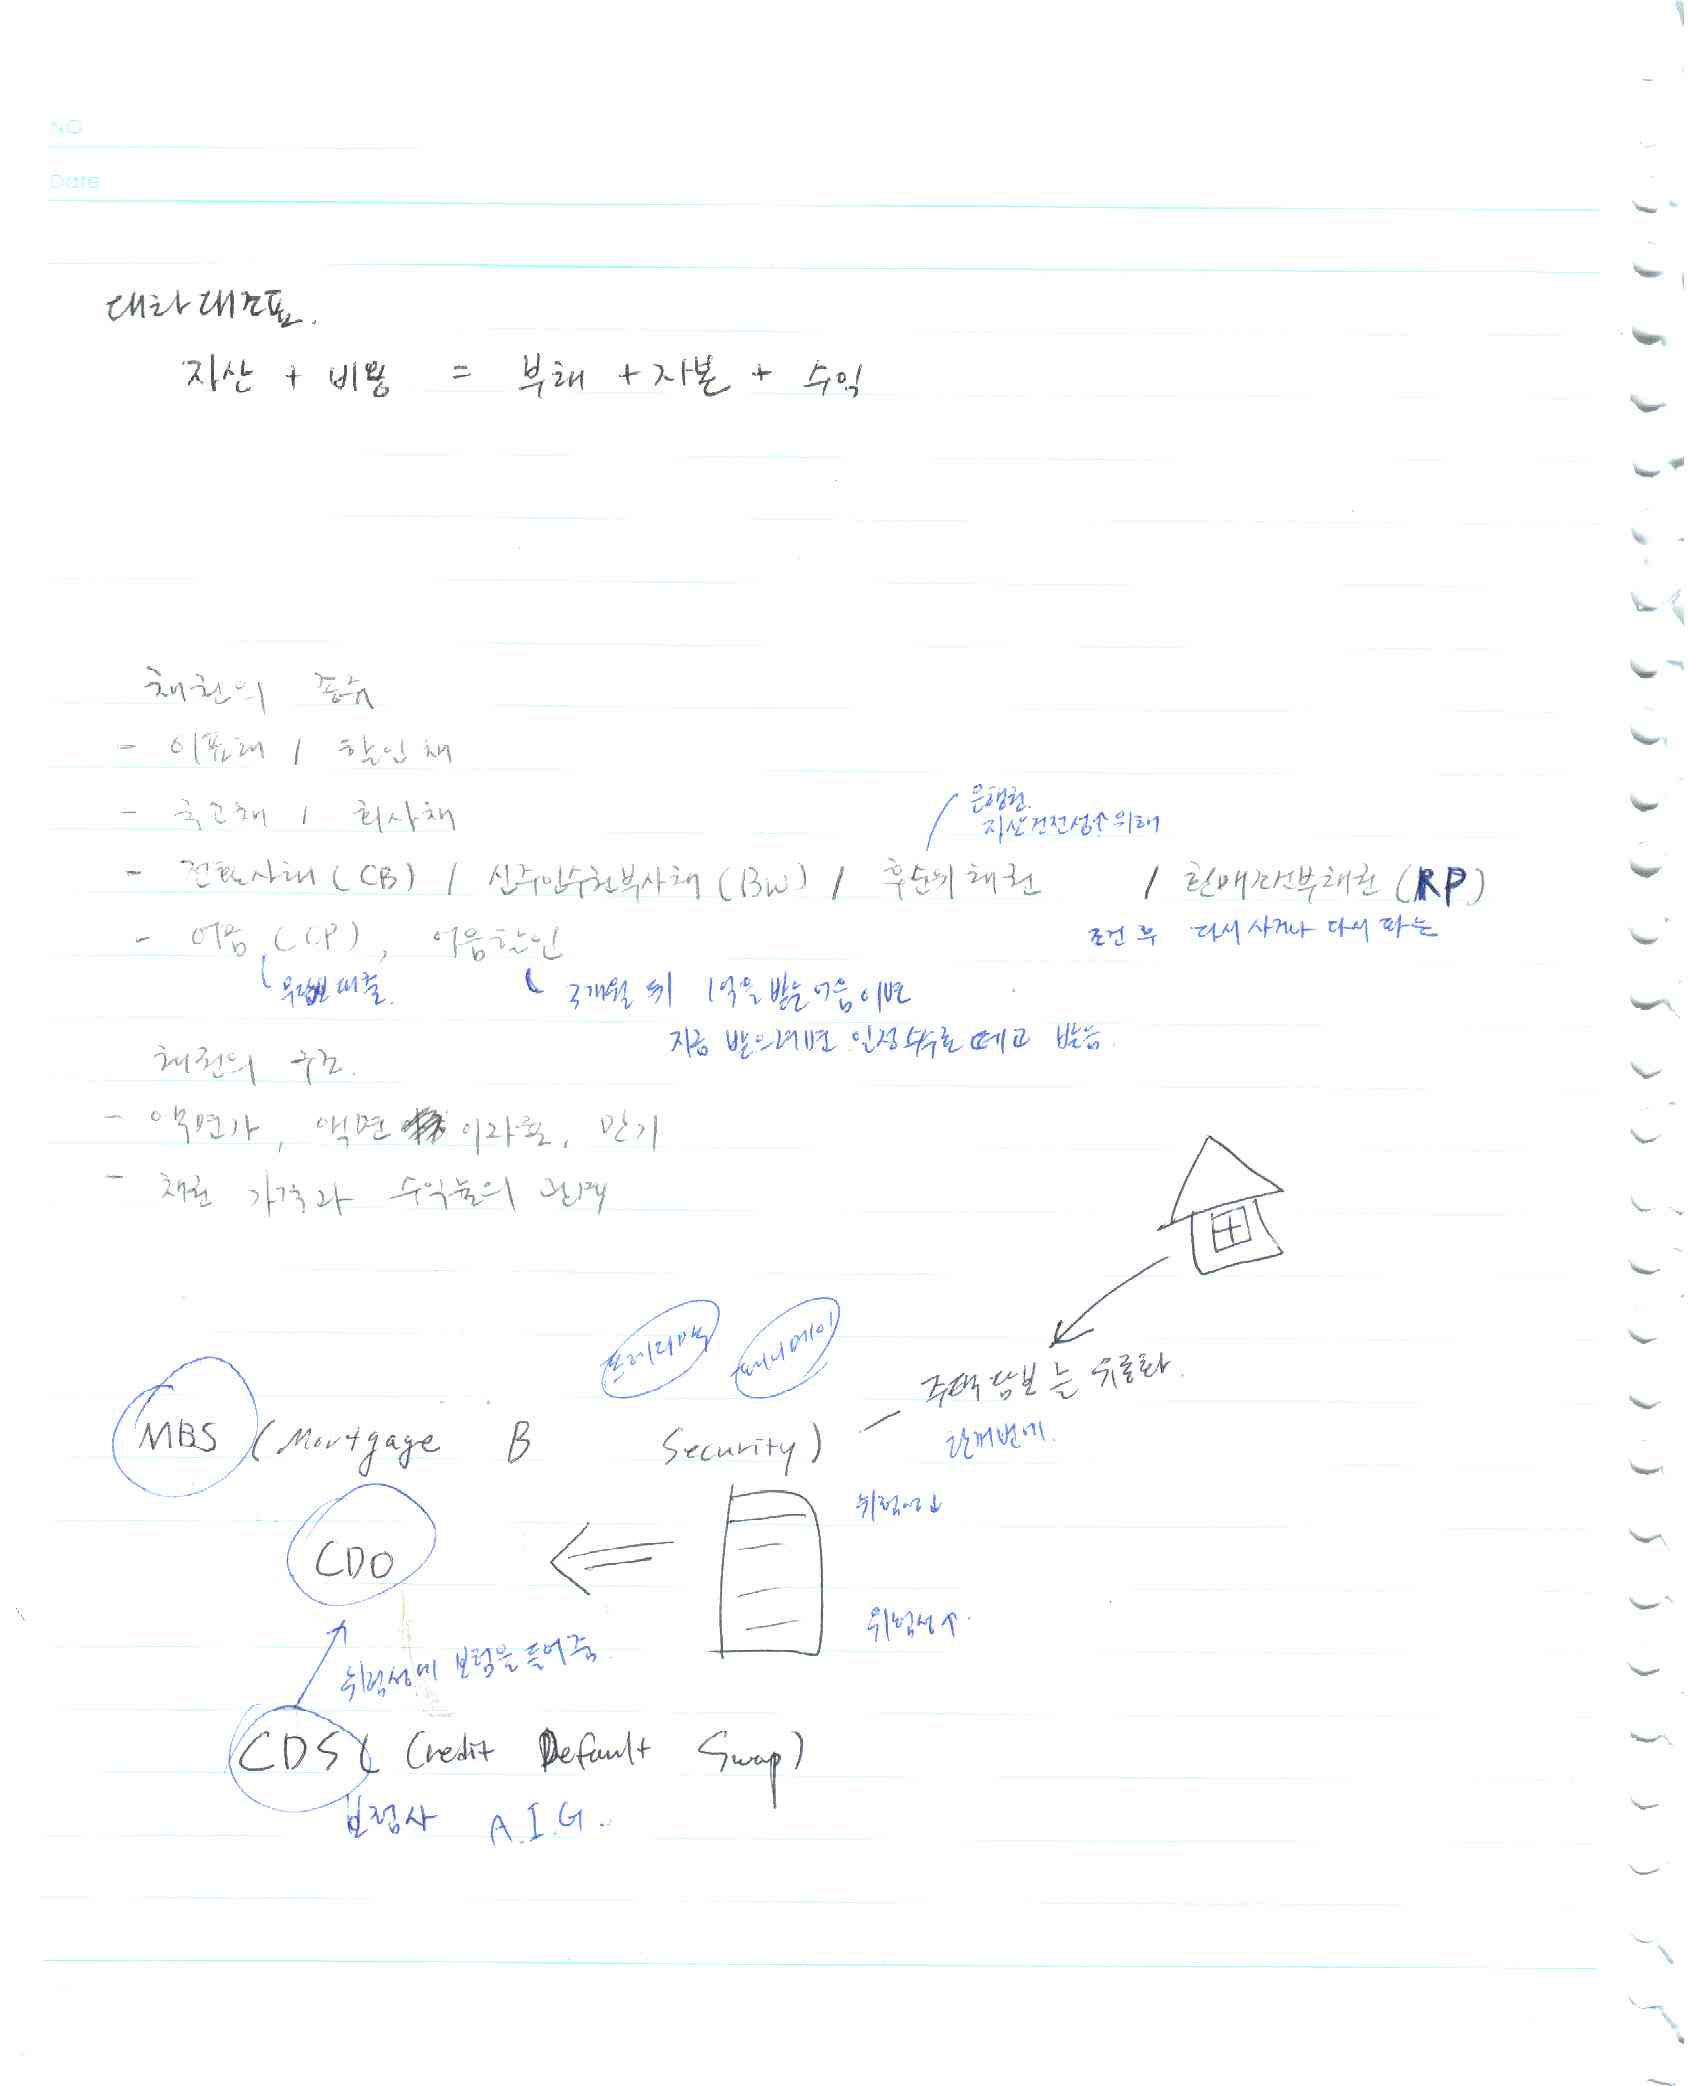 NO
Date
대차대조표.
자산 + 비용 = 부채 + 자본 + 수익
채권의 종류
- 이표채 / 할인채
- 국고채 / 회사채
은행권.
자산건전성↑ 위해
- 전환사채(CB) / 신주인수권부사채(BW) / 후순위채권 / 환매조건부채권(RP)
조건 후 다시 사거나 다시 파는
- 어음(CP), 어음할인
무담보 대출.
3개월 뒤 1억을 받는 어음이면
지금 받으려면 일정수수료 떼고 받음.
채권의 구조.
- 액면가, 액면 이자율, 만기
- 채권 가격과 수익률의 관계
프레디맥
패니메이
MBS (Mortgage B Security) - 주택담보는 유동화.
위험성↓
CDO
위험성↑
위험성에 보험을 들어줌.
CDS (Credit Default Swap)
보험사 A.I.G.